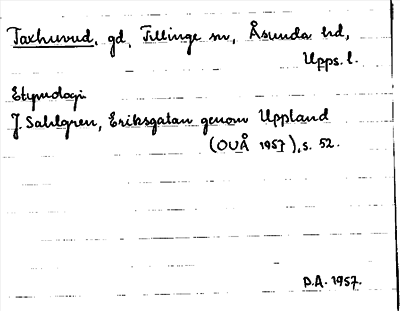 Taxhuvud, gd, Tillinge sn, Åsunda hd,
Upps. l.
Etymologi
J. Sahlgren, Eriksgatan genom Uppland
(OUÅ 1957), s. 52.
D.A. 1957.